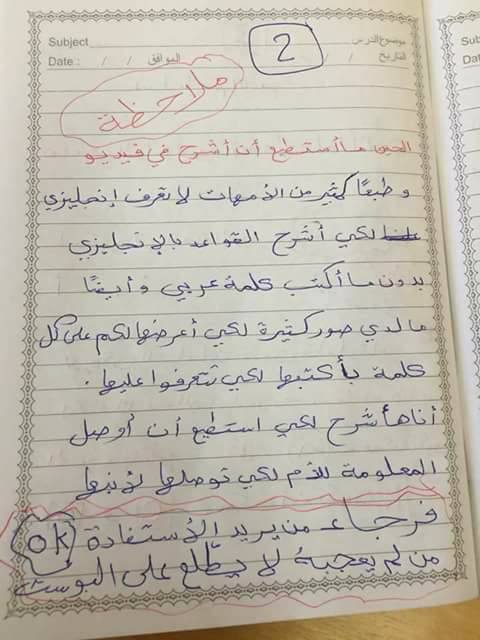 Subject موضوع الدرس
2
Date : / / الموافق / / التاريخ
ملاحظة
الحين ما أستطيع أن أشرح في فيديو
و طبعًا كثير من الأمهات لا تعرف إنجليزي
لكي أشرح القواعد بالإنجليزي
بدون ما أكتب كلمة عربي وأيضًا
ما لدي صور كثيرة لكي أعرضها لكم على كل
كلمة بأكتبها لكي تتعرفوا عليها .
أنا هأشرح لكي استطيع أن أوصل
المعلومة للأم لكي توصلها لأبنها
فرجاء من يريد الأستفادة ok
من لم يعجبهُ لا يطّلع على البوست